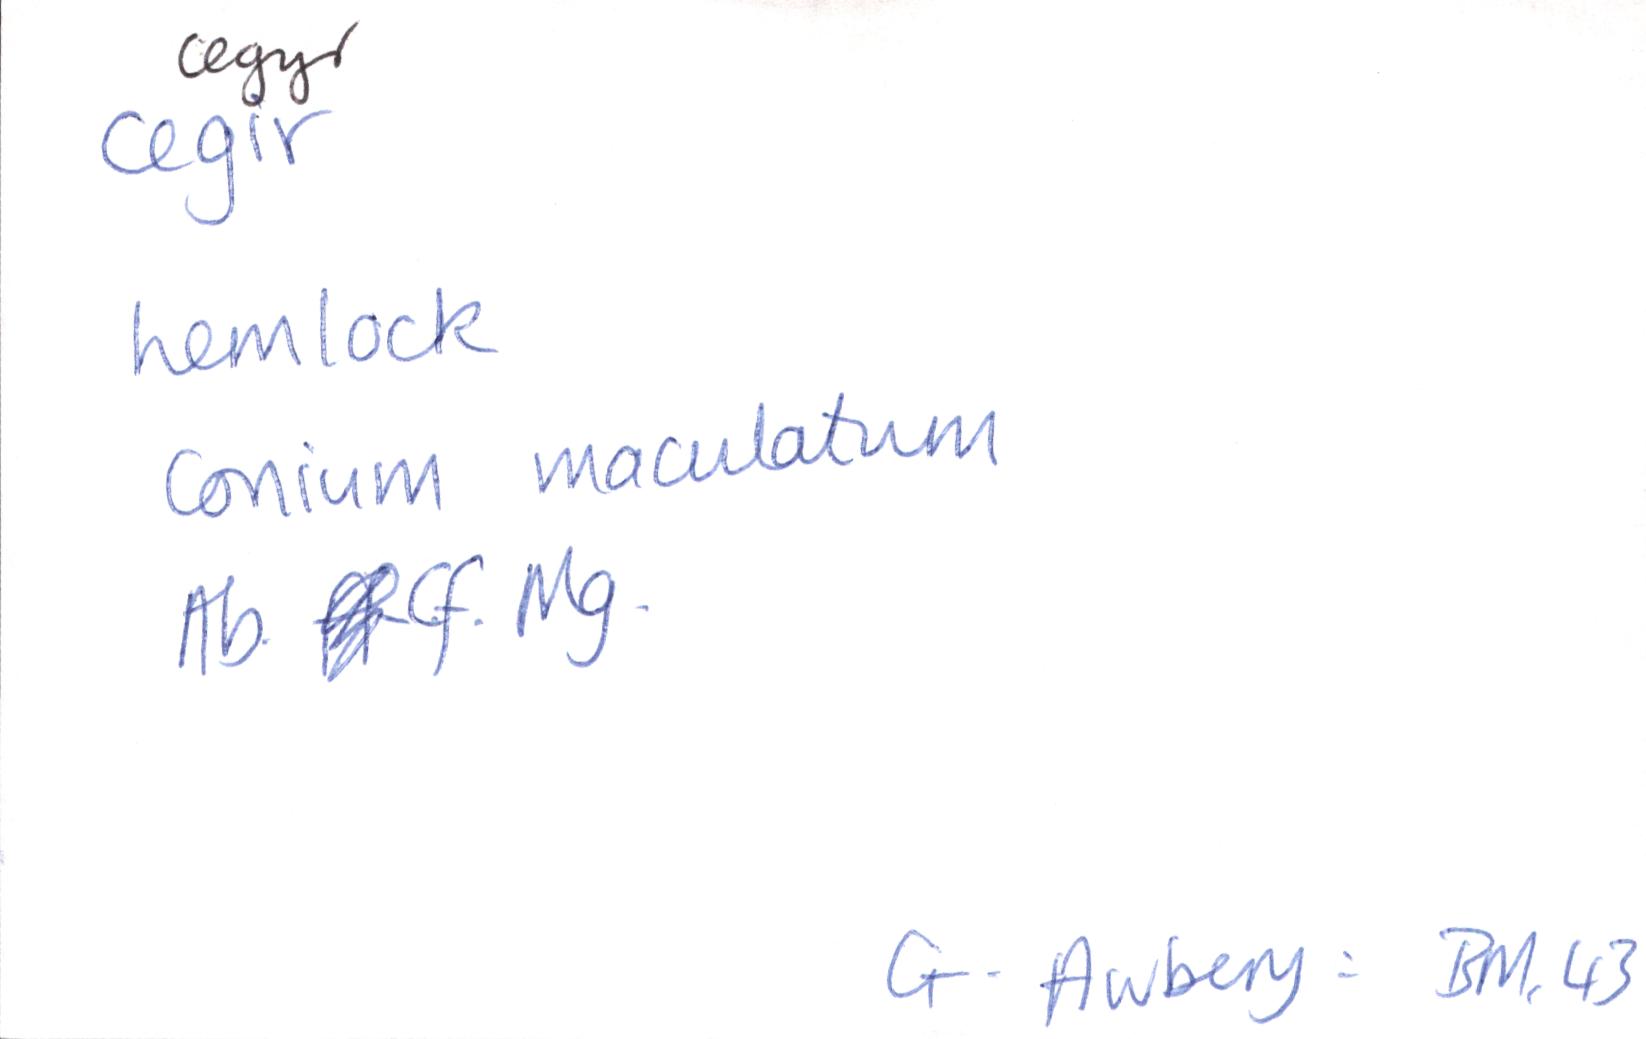 cegyr
cegir
hemlock
Conium maculatum
Ab. Cf. Mg.
G. Awbery: BM. 43